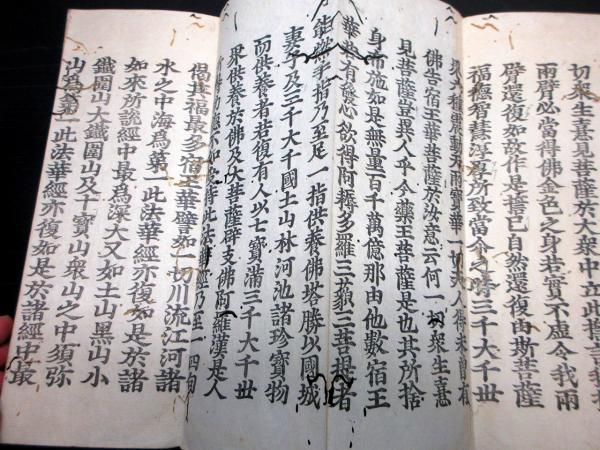 切衆生喜見菩薩於大衆中立此誓言我捨
兩臂必當得佛金色之身若實不虛令我兩
臂還復如故作是誓已自然還復由斯菩薩
福德智慧淳厚所致當今之時三千大千世
界六種震動天雨寶華一切天人得未曾有
佛告宿王華菩薩於汝意云何一切衆生喜
見菩薩豈異人乎今藥王菩薩是也其所捨
身布施如是無量百千萬億那由他數宿王
華若有發心欲得阿耨多羅三藐三菩提者
能然手指乃至足一指供養佛塔勝以國城
妻子及三千大千國土山林河池諸珍寶物
而供養者若復有人以七寶滿三千大千世
界供養於佛及大菩薩辟支佛阿羅漢是人
所得功德不如受持此法華經乃至一四句
偈其福最多宿王華譬如一切川流江河諸
水之中海爲第一此法華經亦復如是於諸
如來所說經中最爲深大又如土山黑山小
鐵圍山大鐵圍山及十寶山衆山之中須彌
山爲第一此法華經亦復如是於諸經中最